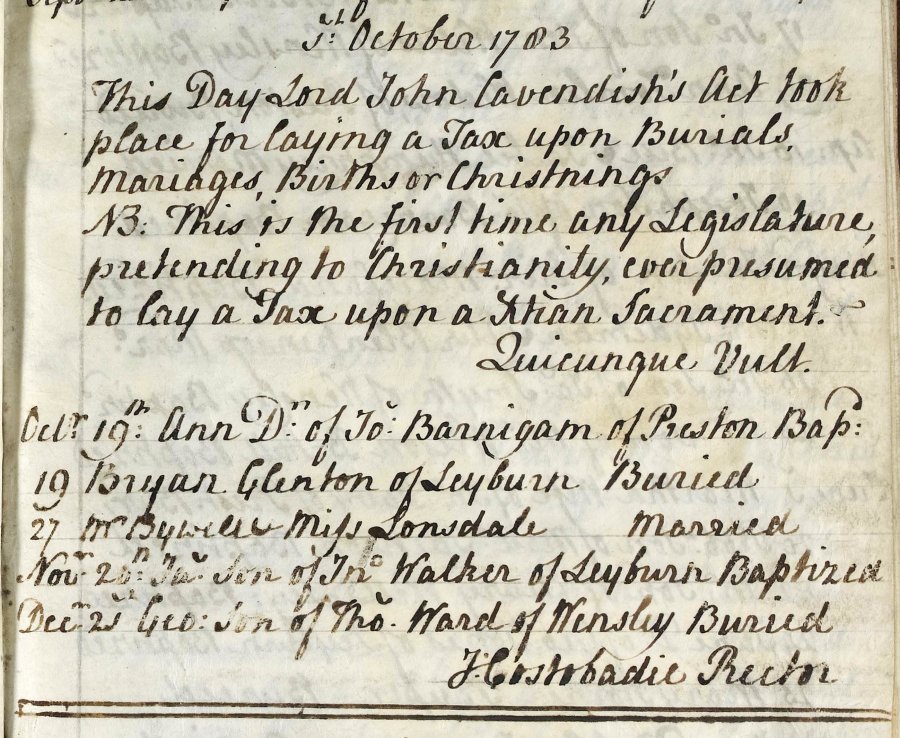 1st: October 1783
This Day Lord John Cavendish's Act took
place for laying a Tax upon Burials,
Mariages, Births or Christnings
NB: This is the first time any Legislature,
pretending to Christianity, ever presumed
to lay a Tax upon a Xtian Sacrament.
Quicunque Vult.
Octr. 19th: Ann Dr. of Jo: Barnigam of Preston Bapd:
19 Bryan Glenton of Leyburn Buried
27 Mr Bywell & Miss Lonsdale Married
Novr. Jas. Son of Jno Walker of Leyburn Baptized
Decr. Geo: Son of Tho. Ward of Wensley Buried
J: Costobadie Rector